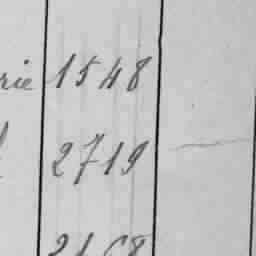 rie 1548
2719